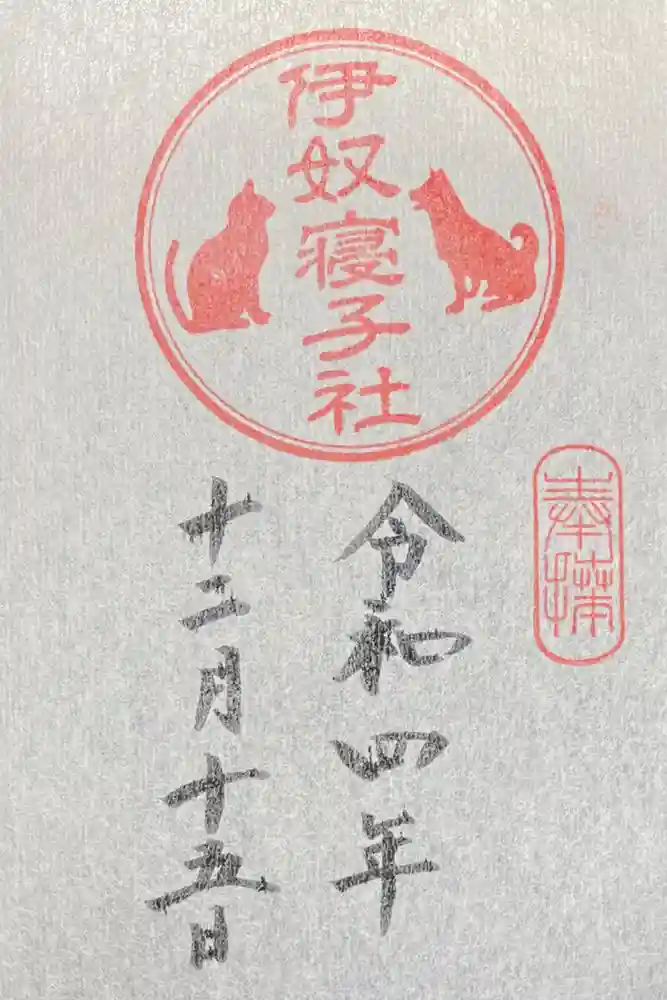 伊奴寝子社
奉拝
令和四年
十二月十五日